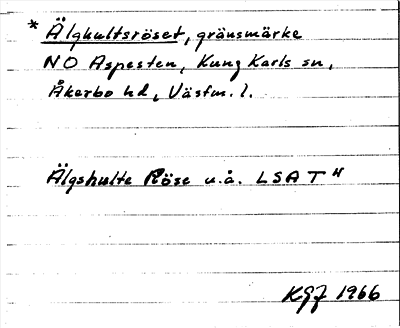 * Älghultsröset, gränsmärke
NO Aspesten, Kung Karls sn,
Åkerbo hd, Västm. l.
Älgshulte Röse u.å. LSA T"
KGJ 1966